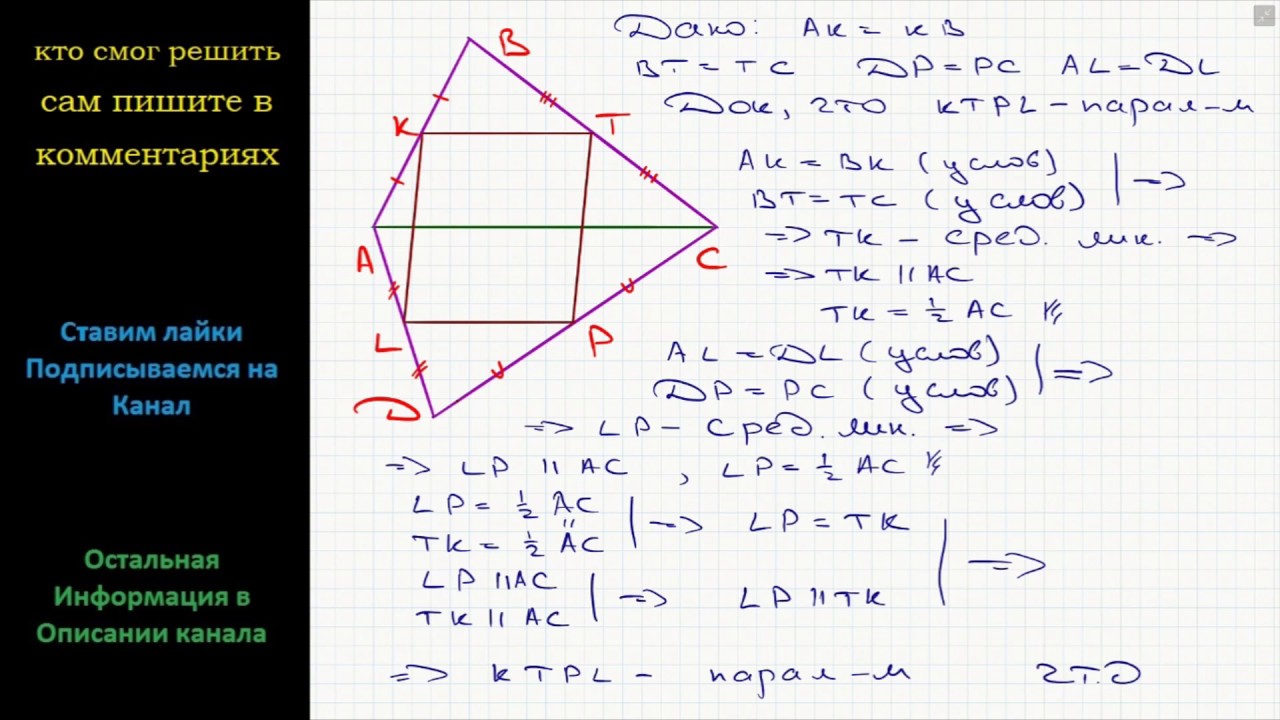 кто смог решить
сам пишите в
комментариях
Ставим лайки
Подписываемся на
Канал
Остальная
Информация в
Описании канала
B
K
T
A
C
L
P
D
Дано: AK = KB
BT = TC DP = PC AL = DL
Док, что KTPL - парал-м
AK = BK (услов)
BT = TC (услов) | =>
=> TK - сред. лин. =>
=> TK || AC
TK = 1/2 AC
AL = DL (услов)
DP = PC (услов) | =>
=> LP - сред. лин. =>
=> LP || AC , LP = 1/2 AC
LP = 1/2 AC
TK = 1/2 AC | => LP = TK
LP || AC
TK || AC | => LP || TK | =>
=> KTPL - парал-м ЧТ.Д